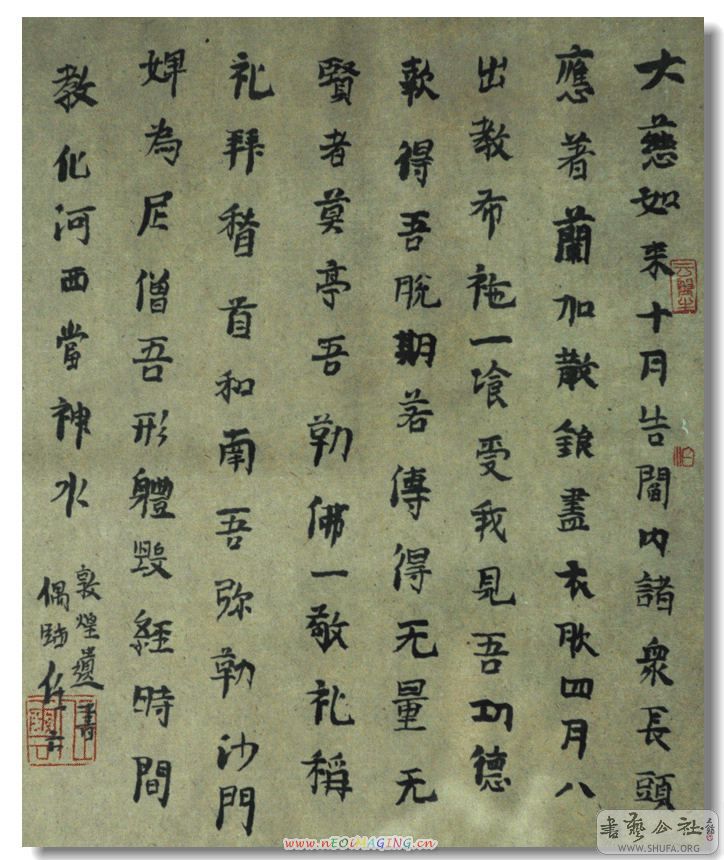 大慈如来十月告閻内諸衆長頭
應著蘭加散錐盡衣耿四月八
出教布袘一飡受我見吾功德
欶得吾脱期若傳得无量无
賢者莫亭吾勒佛一敬礼稱
礼拜稽首和南吾弥勒沙門
婢為尼僧吾形軆毁經時間
教化河西當神水
敦煌遺書
偶臨
www.nEOiMAGING.cn
書藝公社
WWW.SHUFA.ORG